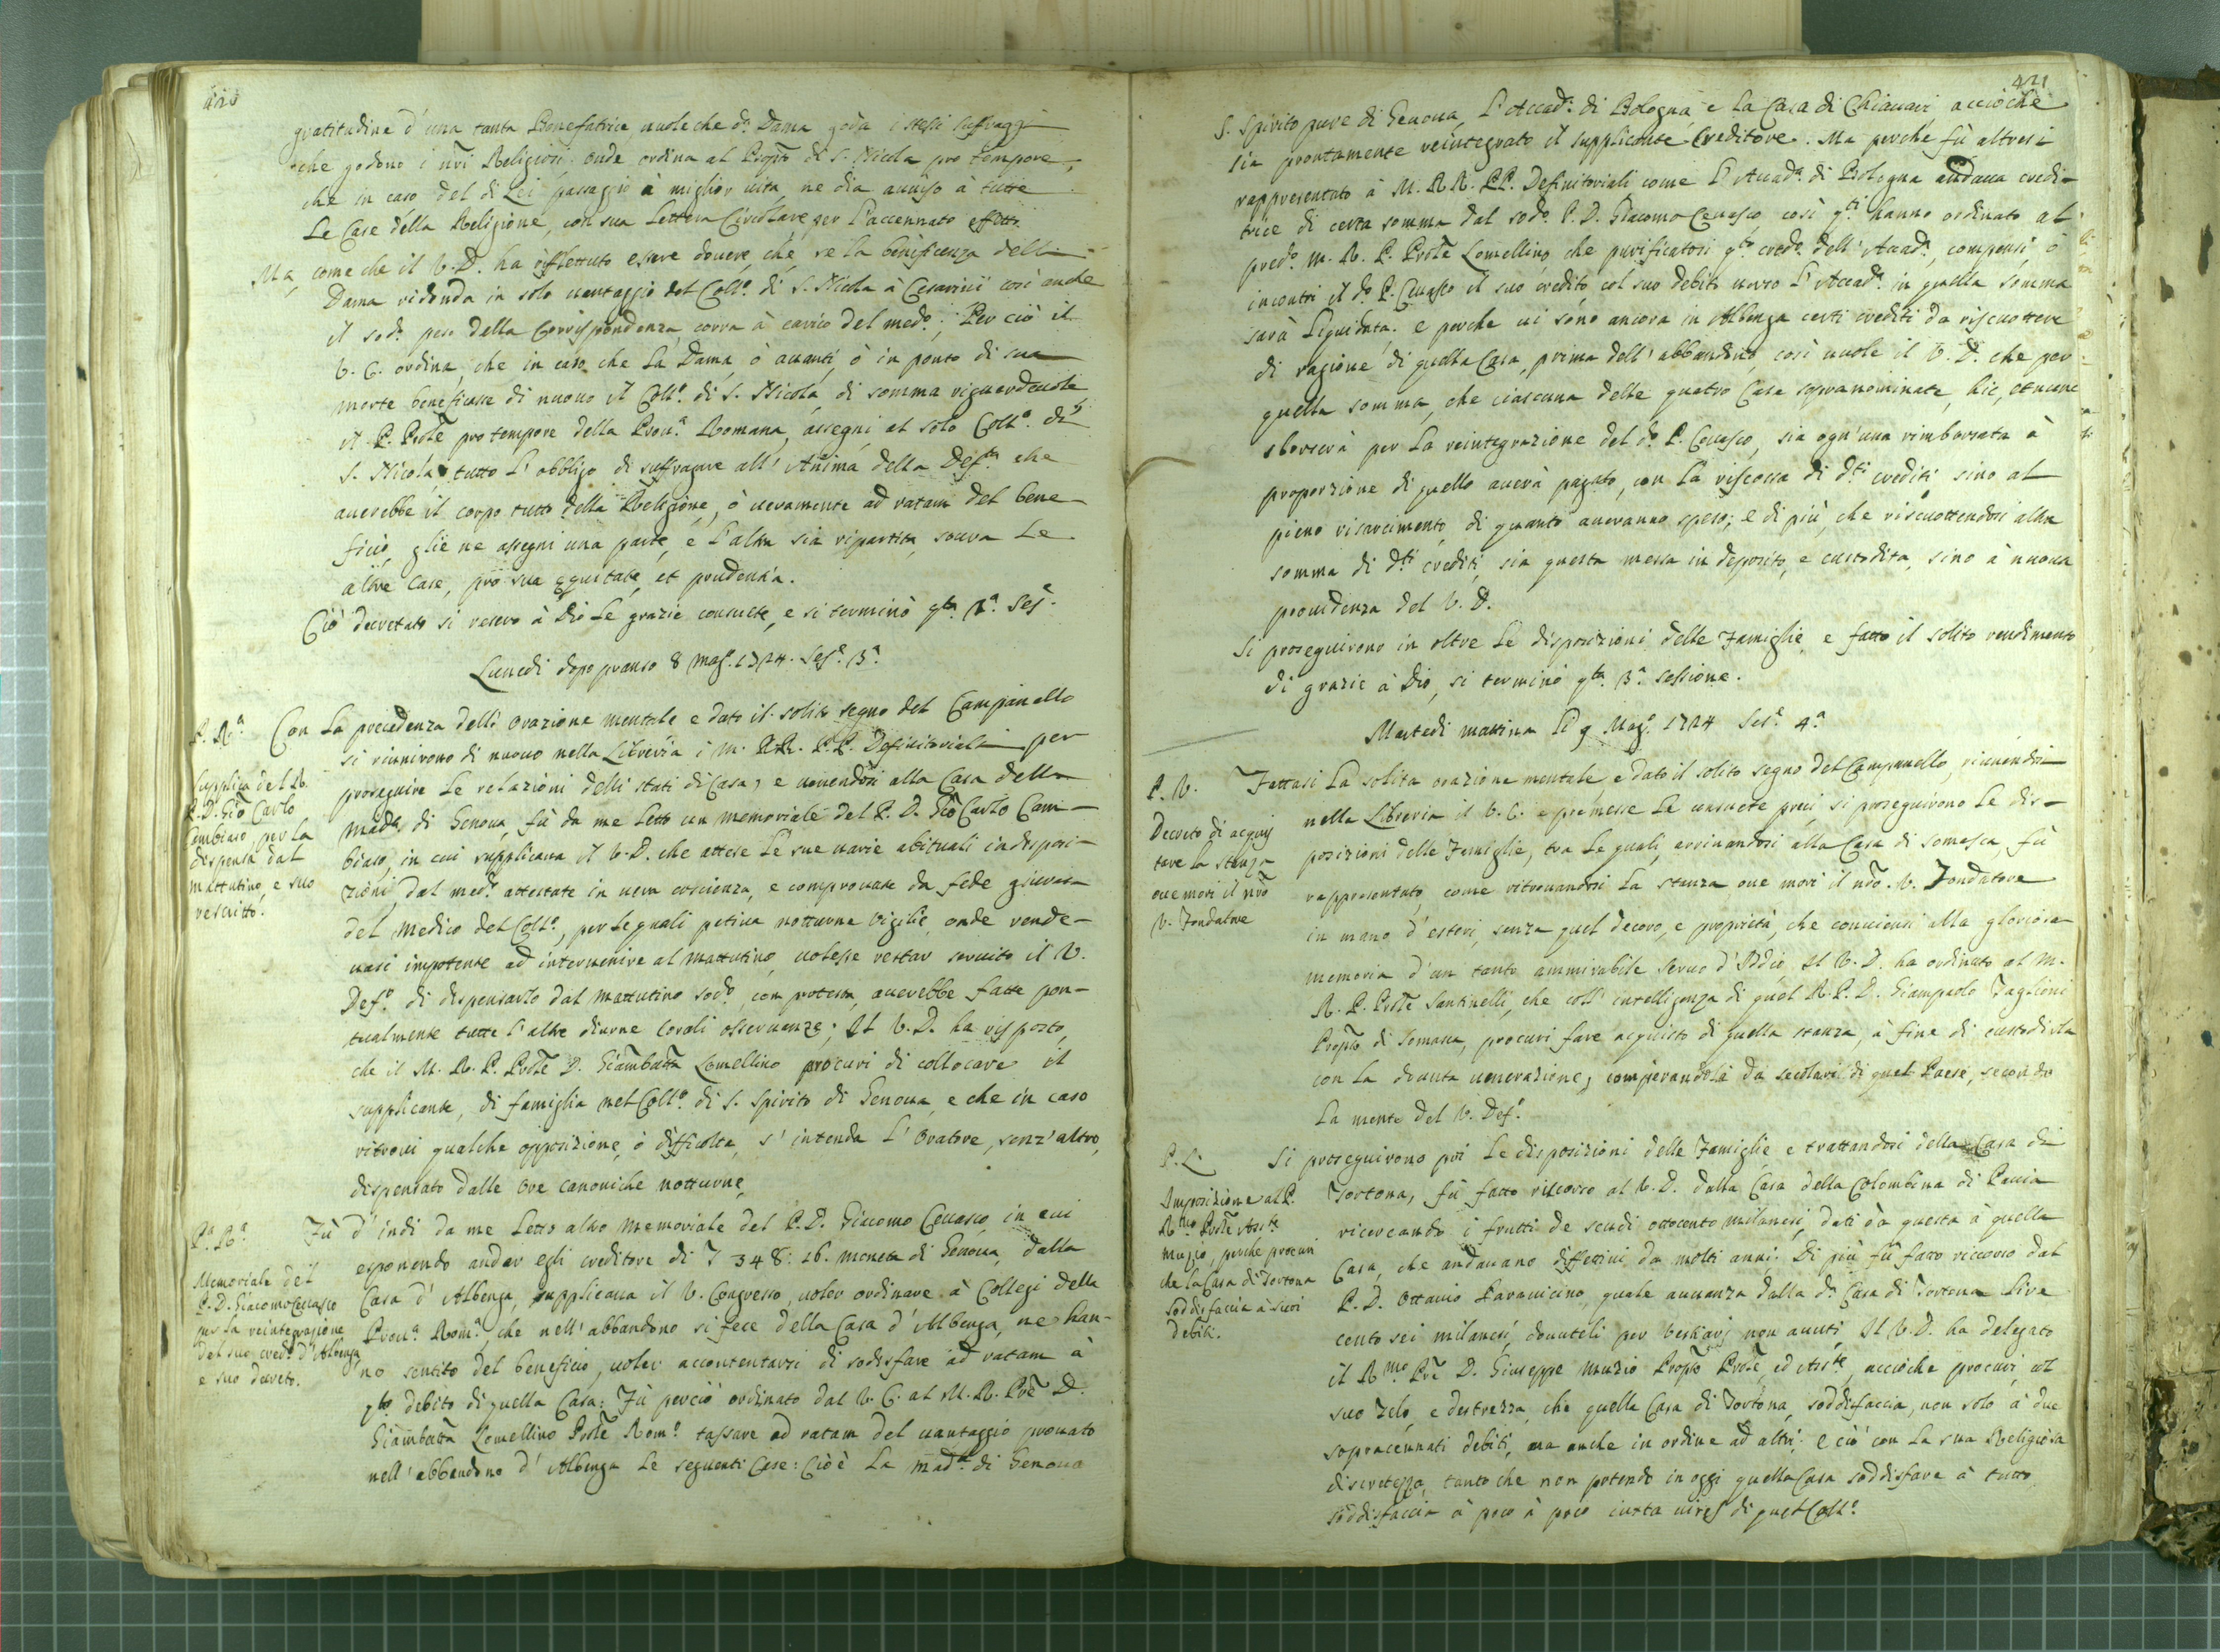 420
gratitudine d'una tanta Benefatrice uuole che d.ª Dama goda i stessi suffraggi
che godono i ñri Religiosi: onde ordina al Prop.to di S. Nicola pro tempore,
che in caso del di Lei passaggio à miglior uita, ne dia auuiso à tutte
Le Case della Religione, con sua Lettera Circolare per l'accennato effetto.
Ma, come che il V. D. ha riflettuto essere douere, che, se la beneficenza della
Dama ridonda in solo uantaggio del Coll.º di S. Nicola à Cesarini così anche
il sod.º peso della Corrispondenza corra à carico del med.º; Per ciò il
V. C. ordina, che in caso che La Dama, ò auanti, ò in ponto di sua
morte beneficasse di nuouo il Coll.º di S. Nicola, di somma riguardeuole
il P. Prõle pro tempore della Prou.ª Romana, assegni al solo Coll.º di
S. Nicola tutto l'obbligo di suffragare all'Anima della Def.ta che
auerebbe il corpo tutto della Religione, ò ueramente ad ratam del bene-
ficio, glie ne assegni una parte, e l'altra sia ripartita soura Le
altre Case, pro sua equitate, et prudentia.
Ciò decretato si resero à Dio le grazie consuete, e si terminò q.ta 2.ª Ses.e
Lunedi dopo pranso 8 Mag.º 1724. Ses.e 3.ª
P. R.ª
Con La precedenza dell'orazione mentale e dato il solito segno del Campanello
si riunirono di nuouo nella Libreria i M. RR. P.P. Definitoriali per
Supplica del R.
P. D. Gio Carlo
Cambiaso, per la
dispensa dal
mattutino, e suo
rescritto.
proseguire Le relazioni delli stati di Casa, e uenendosi alla Casa della
Mad.ª di Genoua, fù da me letto un memoriale del P. D. Gio Carlo Cam-
biaso, in cui supplicaua il V. D. che attese Le sue uarie abituali indisposi-
zioni, dal med.º attestate in uera coscienza, e comprouate da fede giurata
del Medico del Coll.º, per le quali patiua notturne Vigilie, onde rende-
uasi impotente ad interuenire al Mattutino, uolesse restar seruito il V.
Def.º di dispensarlo dal mattutino sod.º con protesta, auerebbe fatte pon-
tualmente tutte l'altre diurne corali osseruanze; Il V. D. ha risposto,
che il M. R. P. Prõle D. Giambatta Lomellino procuri di collocare il
supplicante, di famiglia nel Coll.º di S. Spirito di Genoua, e che in caso
ritroui qualche opposizione, ò difficoltà, s'intenda l'Oratore, senz'altro,
dispensato dalle ore canoniche notturne.
P.ª R.ª
Fù d'indi da me Letto altro Memoriale del P. D. Giacomo Ceuasco, in cui
esponendo andar egli creditore di 348: 16. moneta di Genoua, dalla
Memoriale del
P. D. Giacomo Ceuasco
per la reintegrazione
del suo cred.º d'Albenga
e suo decreto.
Casa d'Albenga, supplicaua il V. Congresso, uoler ordinare à Collegi della
Prou.ª Rom.ª, che nell'abbandono si fece della Casa d'Albenga, ne han-
no sentito del beneficio, uoler accontentarsi di sodisfare ad ratam à
q.to debito di quella Casa: Fù perciò ordinato dal V. C. al M. R. Prẽ D.
Giambatta Lomellino Prõle Rom.º tassare ad ratam del uantaggio prouato
nell'abbandono d'Albenga Le seguenti Case: Cioè La Mad.ª di Genoua
421
S. Spirito pure di Genoua, l'Accad.ª di Bologna, e La Casa di Chiauari, acciòche
sia prontamente reintegrato il supplicante Creditore. Ma perche fù altresi
rappresentato à M. RR. PP. Definitoriali come l'Accad.ª di Bologna andaua credi-
trice di certa somma dal sod.º P. D. Giacomo Ceuasco così q.ti hanno ordinato al
pred.º M. R. P. Prõle Lomellino, che purificatosi q.to cred.º dell'Accad.ª, compensi, ò
incontri il d.º P. Ceuasco il suo credito, col suo debito uerso l'Accad.ª in quella somma
sarà Liquidata. e perche ui sono ancora in Albenga certi crediti da riscuottere
di ragione di quella Casa, prima dell'abbandono, così uuole il V. D. che per
quella somma, che ciascuna delle quatro Case sopranominate, hic, et nunc
sborserà per La reintegrazione del d.º P. Ceuasco, sia ogn'una rimborsata à
proporzione di quello auerà pagato, con La riscossa di d.ti crediti sino al
pieno risarcimento di quanto aueranno speso; e di più, che riscuottendosi altra
somma di d.ti crediti, sia questa messa in deposito, e custodita, sino à nuoua
prouidenza del V. D.
Si proseguirono in oltre Le disposizioni delle Famiglie, e fatto il solito rendimento
di grazie à Dio, si terminò q.ta 3.ª sessione.
Martedi mattina Li 9 Mag.º 1724 Ses.e 4.ª
P. V.
Fattasi La solita orazione mentale, e dato il solito segno del Campanello, riunendosi
nella Libreria il V. C. e premesse Le consuete preci, si proseguirono Le dis-
Decreto di acquis
tare La stanza
oue morì il nrõ
V. Fondatore
posizioni delle Famiglie, tra Le quali, arriuandosi alla Casa di Somasca, fù
rappresentato, come ritrouandosi La stanza oue morì il nrõ V. Fondatore
in mano d'esteri, senza quel decoro, e proprietà, che conuiensi alla gloriosa
memoria d'un tanto ammirabile seruo d'Iddio, Il V. D. ha ordinato al M.
R. P. Prõle Santinelli, che coll'intelligenza di quel R. P. D. Giampaolo Taglioni
Prop.to di Somasca, procuri fare acquisto di quella stanza, à fine di custodirla
con La douuta uenerazione, comperandola da secolari di quel Paese, secondo
La mente del V. Def.º
P. L.
Si proseguirono poi Le disposizioni delle Famiglie, e trattandosi della Casa di
Imposizione al P.
R.mo Prõle Ass.te
Muzio, perche procuri
che la Casa di Tortona
soddisfaccia à suoi
debiti.
Tortona, fù fatto ricorso al V. D. dalla Casa della Colombina di Pauia
ricercando i frutti de scudi ottocento milanesi, dati da questa à quella
Casa, che andauano differiti da molti anni; Di più fù fatto riccorso dal
P. D. Ottauio Parauicino, quale auuanza dalla d.ª Casa di Tortona Lire
cento sei milanesi, douuteli per uestiarj non auuti, Il V. D. ha delegato
il R.mo Prẽ D. Giuseppe Muzio Prop.to Prõle, ed Ass.te, acciòche procuri, col
suo zelo, e destrezza, che quella Casa di Tortona, soddisfaccia, non solo à due
sopracennati debiti, ma anche in ordine ad altri; e ciò con La sua Religiosa
discretezza, tanto che non potendo in oggi quella Casa soddisfare à tutto
soddisfaccia à poco à poco iuxta uires di quel Coll.º